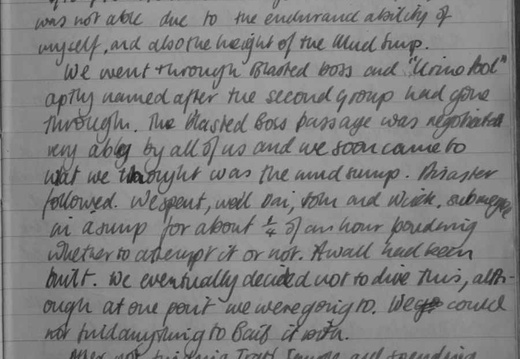 was not able due to the endurance ability of
myself, and also the height of the Mud Sump.
We went through Blasted Boss and "Urino Pool"
aptly named after the second group had gone
through. The Blasted Boss passage was negotiated
very ably by all of us and we soon came to
what we thought was the mud sump. Disaster
followed. We spent, well Dai, Tom and Wick,
in a sump for about ¼ of an hour pondering
whether to attempt it or not. A wall had been
built. We eventually decided not to dive this, alth-
ough at one point we were going to. We could
not find anything to Bail it with.
After not
and spending